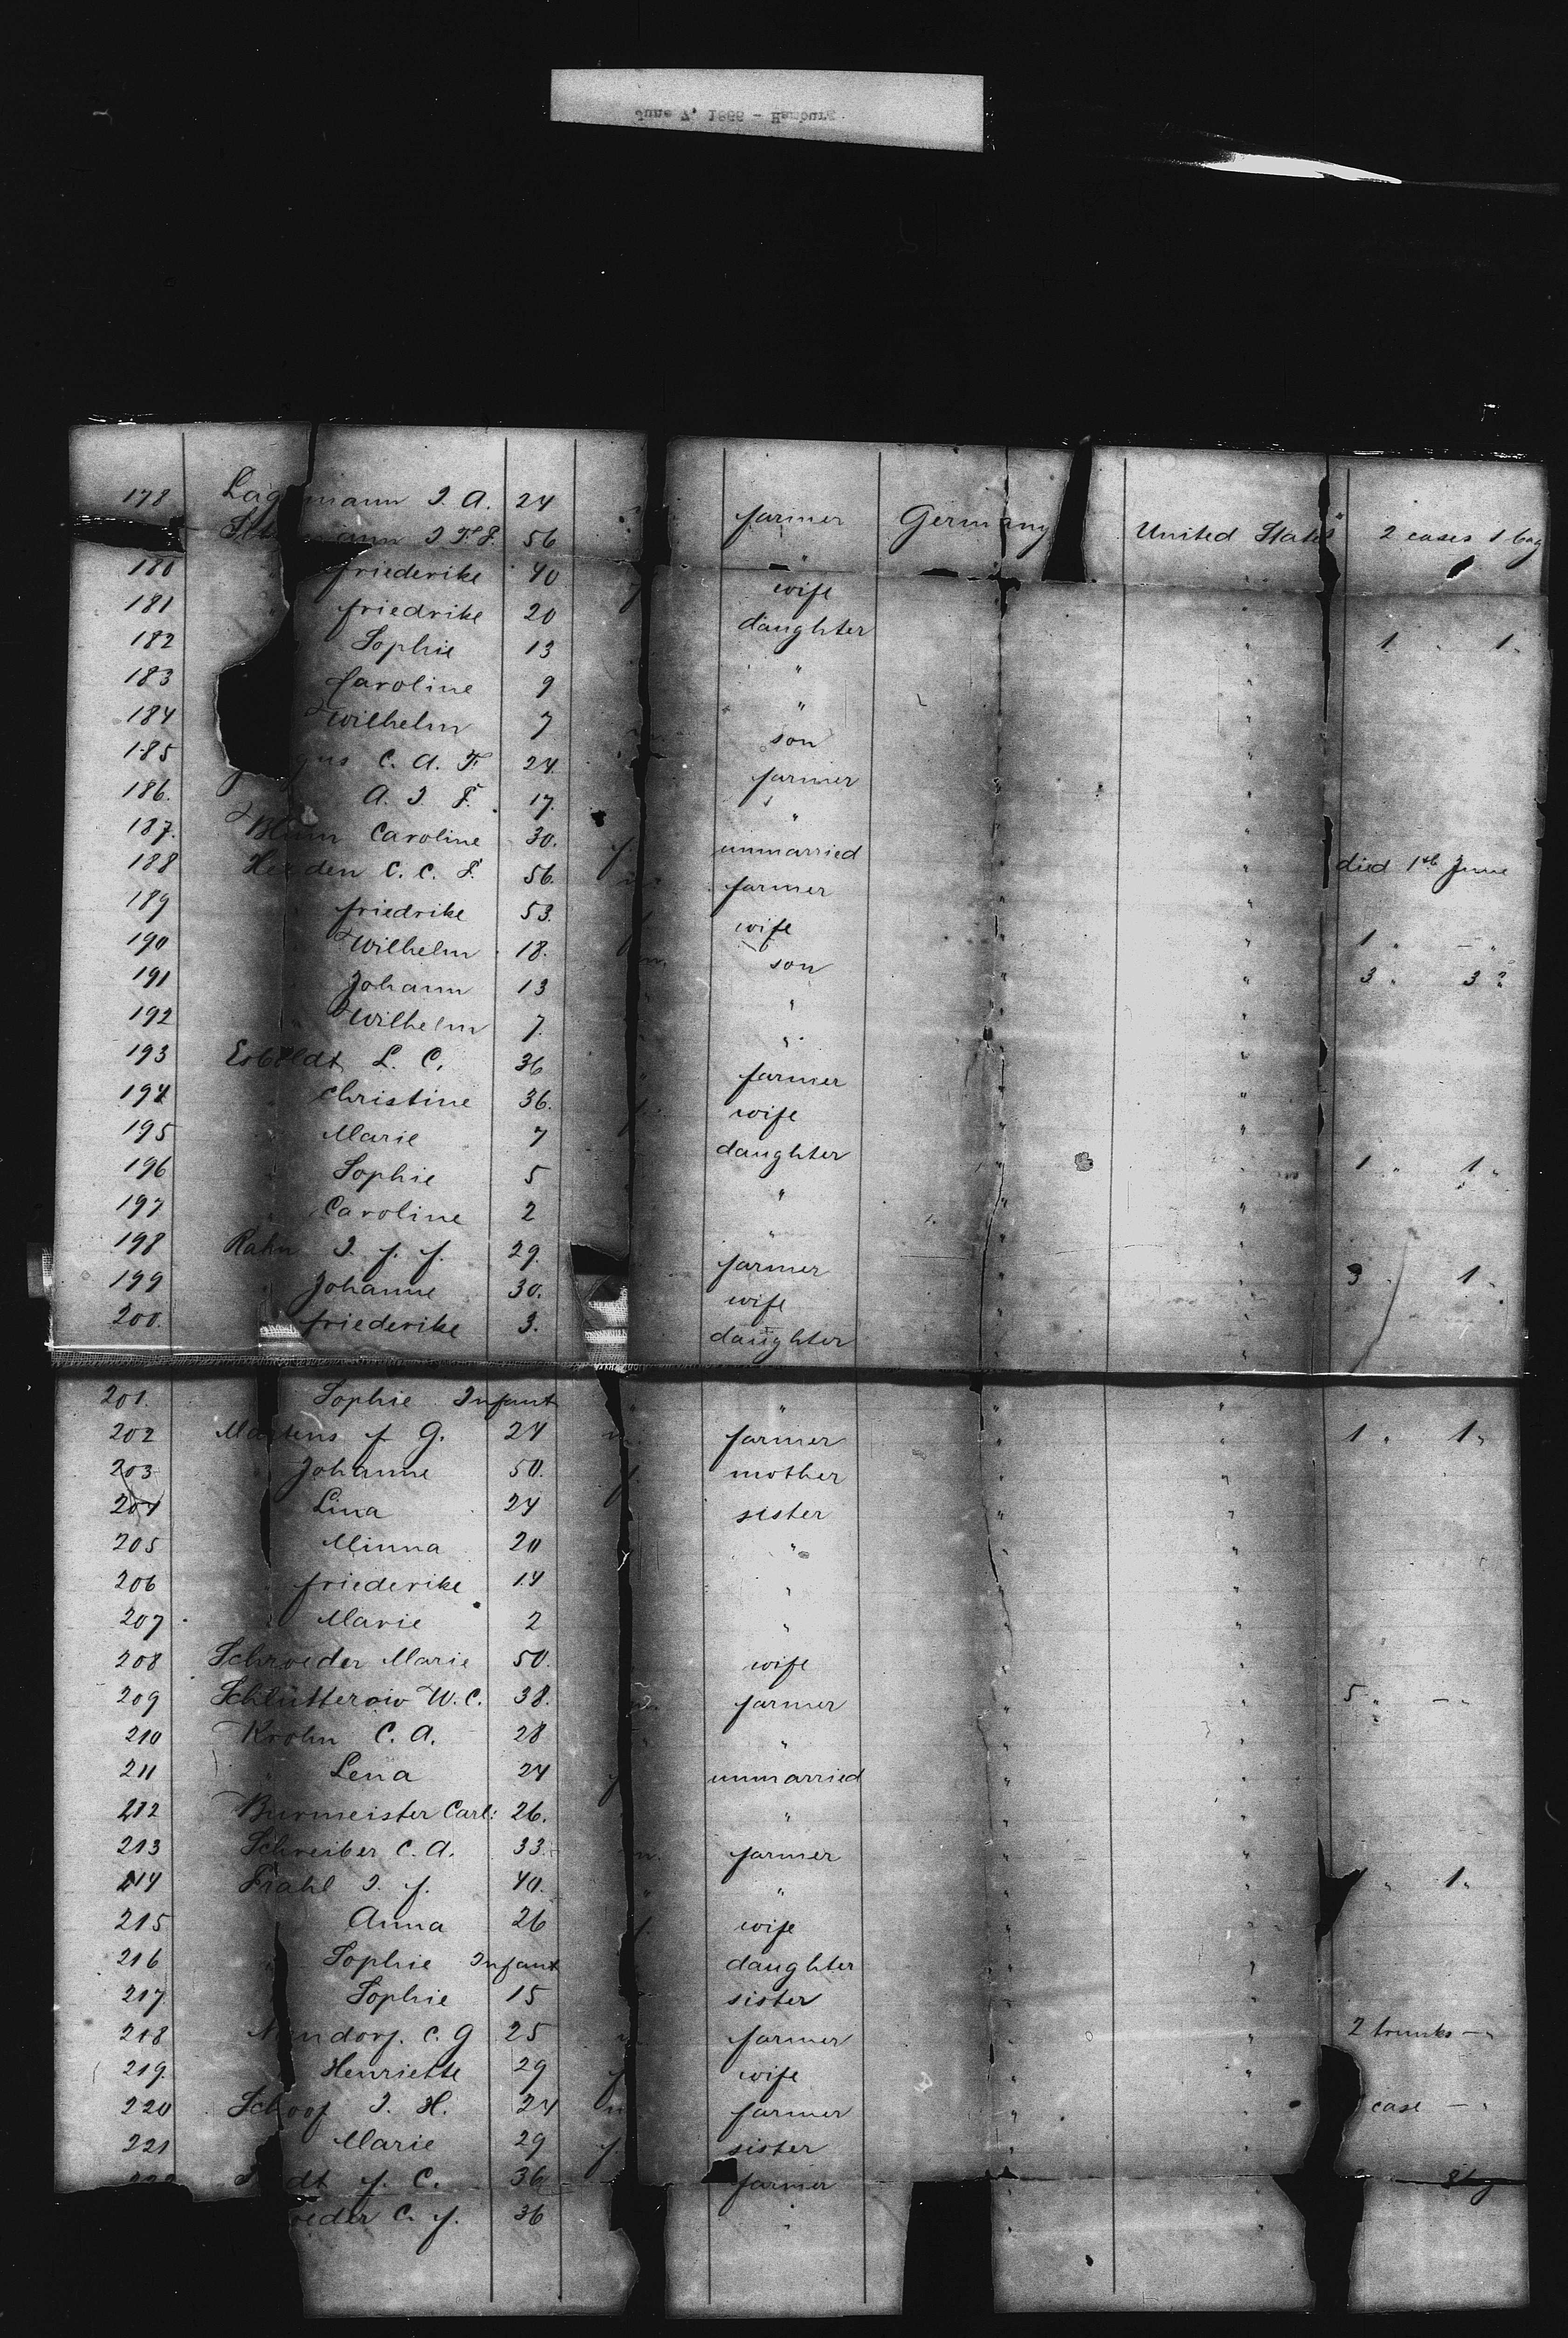 June 7, 1866 - Hamburg
178 Lag mann J. A. 24 farmer Germany United States 2 cases 1 bag
mann J. F. F. 56 "
180 " friederike 40 f wife "
181 " friedrike 20 daughter "
182 Sophie 13 " " 1 " 1 "
183 Caroline 9 " "
184 Wilhelm 7 son "
185 gus C. A. F. 24 farmer " "
186. A. J. F. 17. " " "
187. Blum Caroline 30. f. unmarried " "
188 Heyden C. C. F. 56. m. farmer " " died 1th June
189 " friedrike 53. wife " "
190 Wilhelm 18. m. son " " 1 " - "
191 " Johann 13 " " " " 3 " 3 ?
192 " Wilhelm 7. " " " "
193 Esboldt L. C. 36 " farmer " "
194 " Christine 36. f. wife " "
195 " Marie 7 daughter " "
196 " Sophie 5 " " " 1 " 1 "
197 " Caroline 2 " " "
198 Rahn J. f. f. 29. farmer " "
199 " Johanne 30. wife " " 3 " 1 "
200. friederike 3. daughter " "
201. Sophie Infant " " "
202 Martens f G. 24 m. farmer " " 1 " 1 "
203 " Johanne 50. f. mother " "
204 Lina 24 sister " "
205 Minna 20 " " "
206 " friederike 14 " " "
207 " Marie 2 " " "
208 Schroeder Marie 50. wife " "
209 Schlütterow W. C. 38. m. farmer " " 5 " - "
210 Krohn C. A. 28 " " " "
211 " Lena 24 f unmarried " "
212 Burmeister Carl: 26. " " "
213 Schreiber C. A. 33. m. farmer " "
214 Frahl J. f. 40. " " " " 1 " 1 "
215 Anna 26 f. wife " "
216 " Sophie Infant daughter " "
217 Sophie 15 sister " "
218 ndorf. C. G 25 m. farmer " " 2 trunks - "
219. Henriette 29 f wife " "
220 Schoof J. H. 24 m farmer " " case - "
221 Marie 29 f. sister " "
dt f. C. 36 farmer
eder C. f. 36 " " "